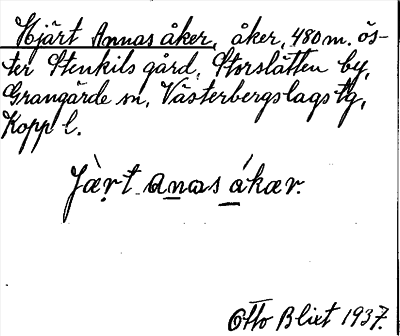 Hjärt Annas åker, åker, 480 m. ös-
ter Stenkils gård, Storslätten by,
Grangärde sn, Västerbergslags tg,
Kopp l.
Jæ̀ṛt anas ákær.
Otto Blixt 1937.